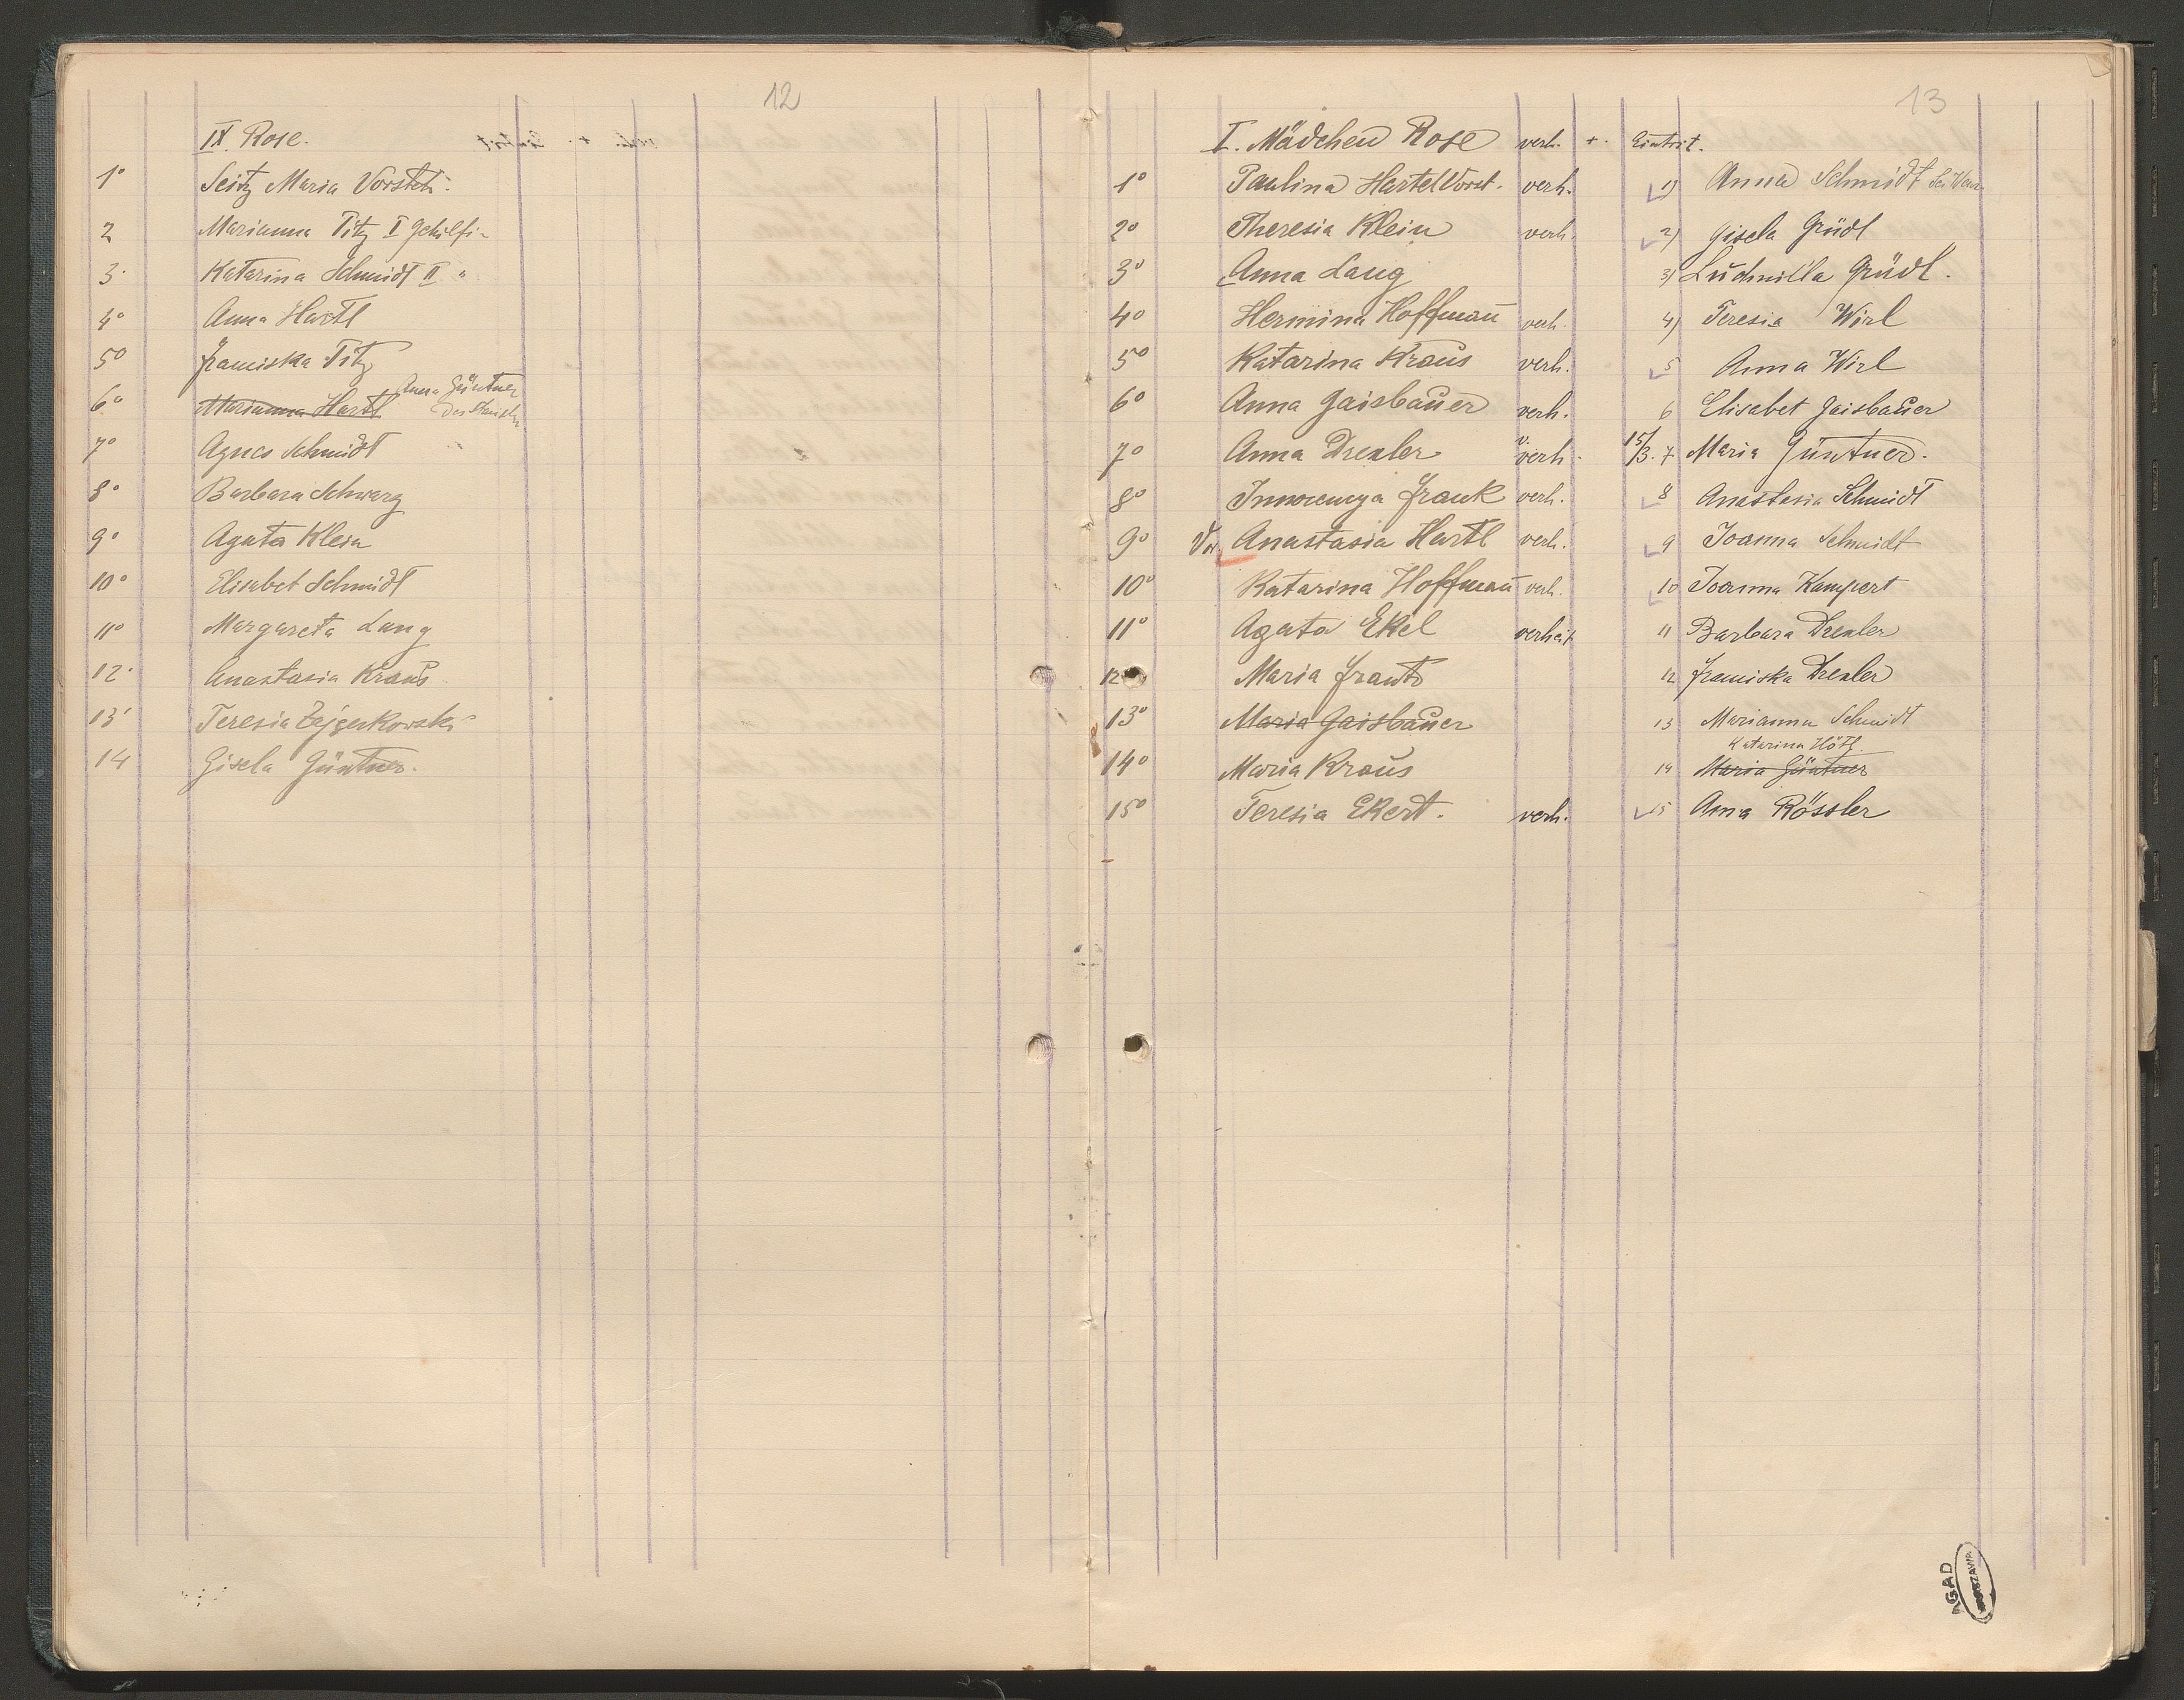 12
IX. Rose.
1° Seitz Maria Vorsteh.
2 Marianna Titz I Gehilfi-
3. Katarina Schmidt II "
4° Anna Hartl
5° Franciska Titz
Anna Güntner
6° Marianna Hartl
7° Agnes Schmidt
8° Barbara Schwarz
9° Agata Klein
10° Elisabet Schmidt
11° Margareta Lang
12. Anastasia Kraus
13. Teresia
14 Gisela Güntner.
13
I. Mädchen Rose verh. +. Eintrit.
1° Paulina Hartel Vorst. verh. 1) Anna Schmidt
2° Theresia Klein verh. 2) Gisela Grüdl
3° Anna Lang 3) Ludmilla Grüdl.
4° Hermina Hoffmann verh. 4) Teresia Wirl
5° Katarina Kraus verh. 5 Anna Wirl
6° Anna Gaisbauer verh. 6 Elisabet Gaisbauer
7° Anna Drexler v. verh. 15/3. 7 Maria Güntner.
8° Innocenzya Frank verh. 8 Anastasia Schmidt
9° Vor. Anastasia Hartl verh. 9 Joanna Schmidt
10° Katarina Hoffmann verh. 10 Joanna Kampert
11° Agata Ekel verheit 11 Barbara Drexler
12 Maria Frantz 12 Franciska Drexler
13° Maria Gaisbauer 13 Marianna Schmidt
Katarina Hötl.
14° Maria Kraus 14 Maria Güntner
15° Teresia Ekert. verh. 15 Anna Rössler
AGAD
WARSZAWA